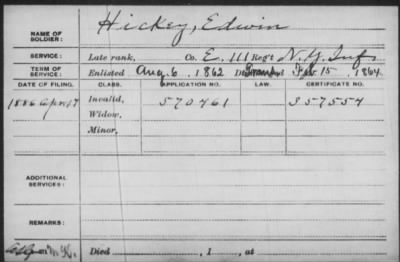 NAME OF SOLDIER: Hickey, Edwin
SERVICE: Late rank, Co. E, 111 Reg't N.Y. Inf.
TERM OF SERVICE: Enlisted Aug. 6, 1862 15, 1864
DATE OF FILING. CLASS. APPLICATION NO. LAW. CERTIFICATE NO.
1886 Apr 17 Invalid, 570461 357554
Widow,
Minor,
ADDITIONAL SERVICES:
REMARKS:
Died , 1 , at